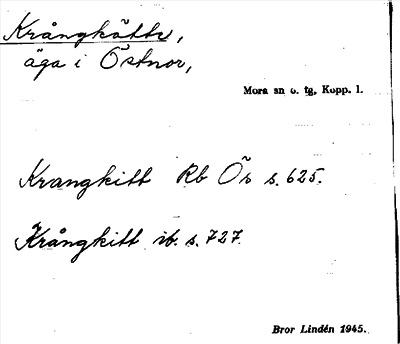 Krångkätte,
äga i Östnor,
Mora sn o. tg, Kopp. l.
Krangkitt Rb Ös s. 625.
Krångkitt ib. s. 727.
Bror Lindén 1945.